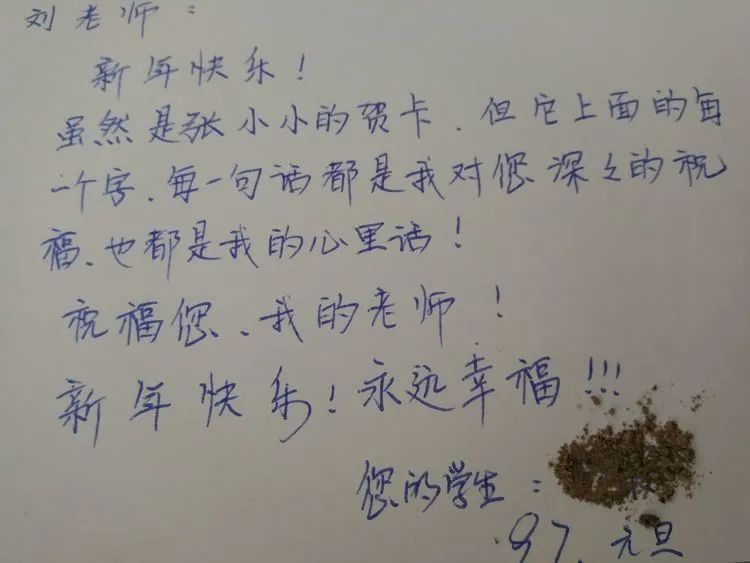 刘老师：
新年快乐！
虽然是张小小的贺卡、但它上面的每
一个字、每一句话都是我对您深々的祝
福、也都是我的心里话！
祝福您、我的老师！
新年快乐！永远幸福!!!
您的学生：
97.元旦